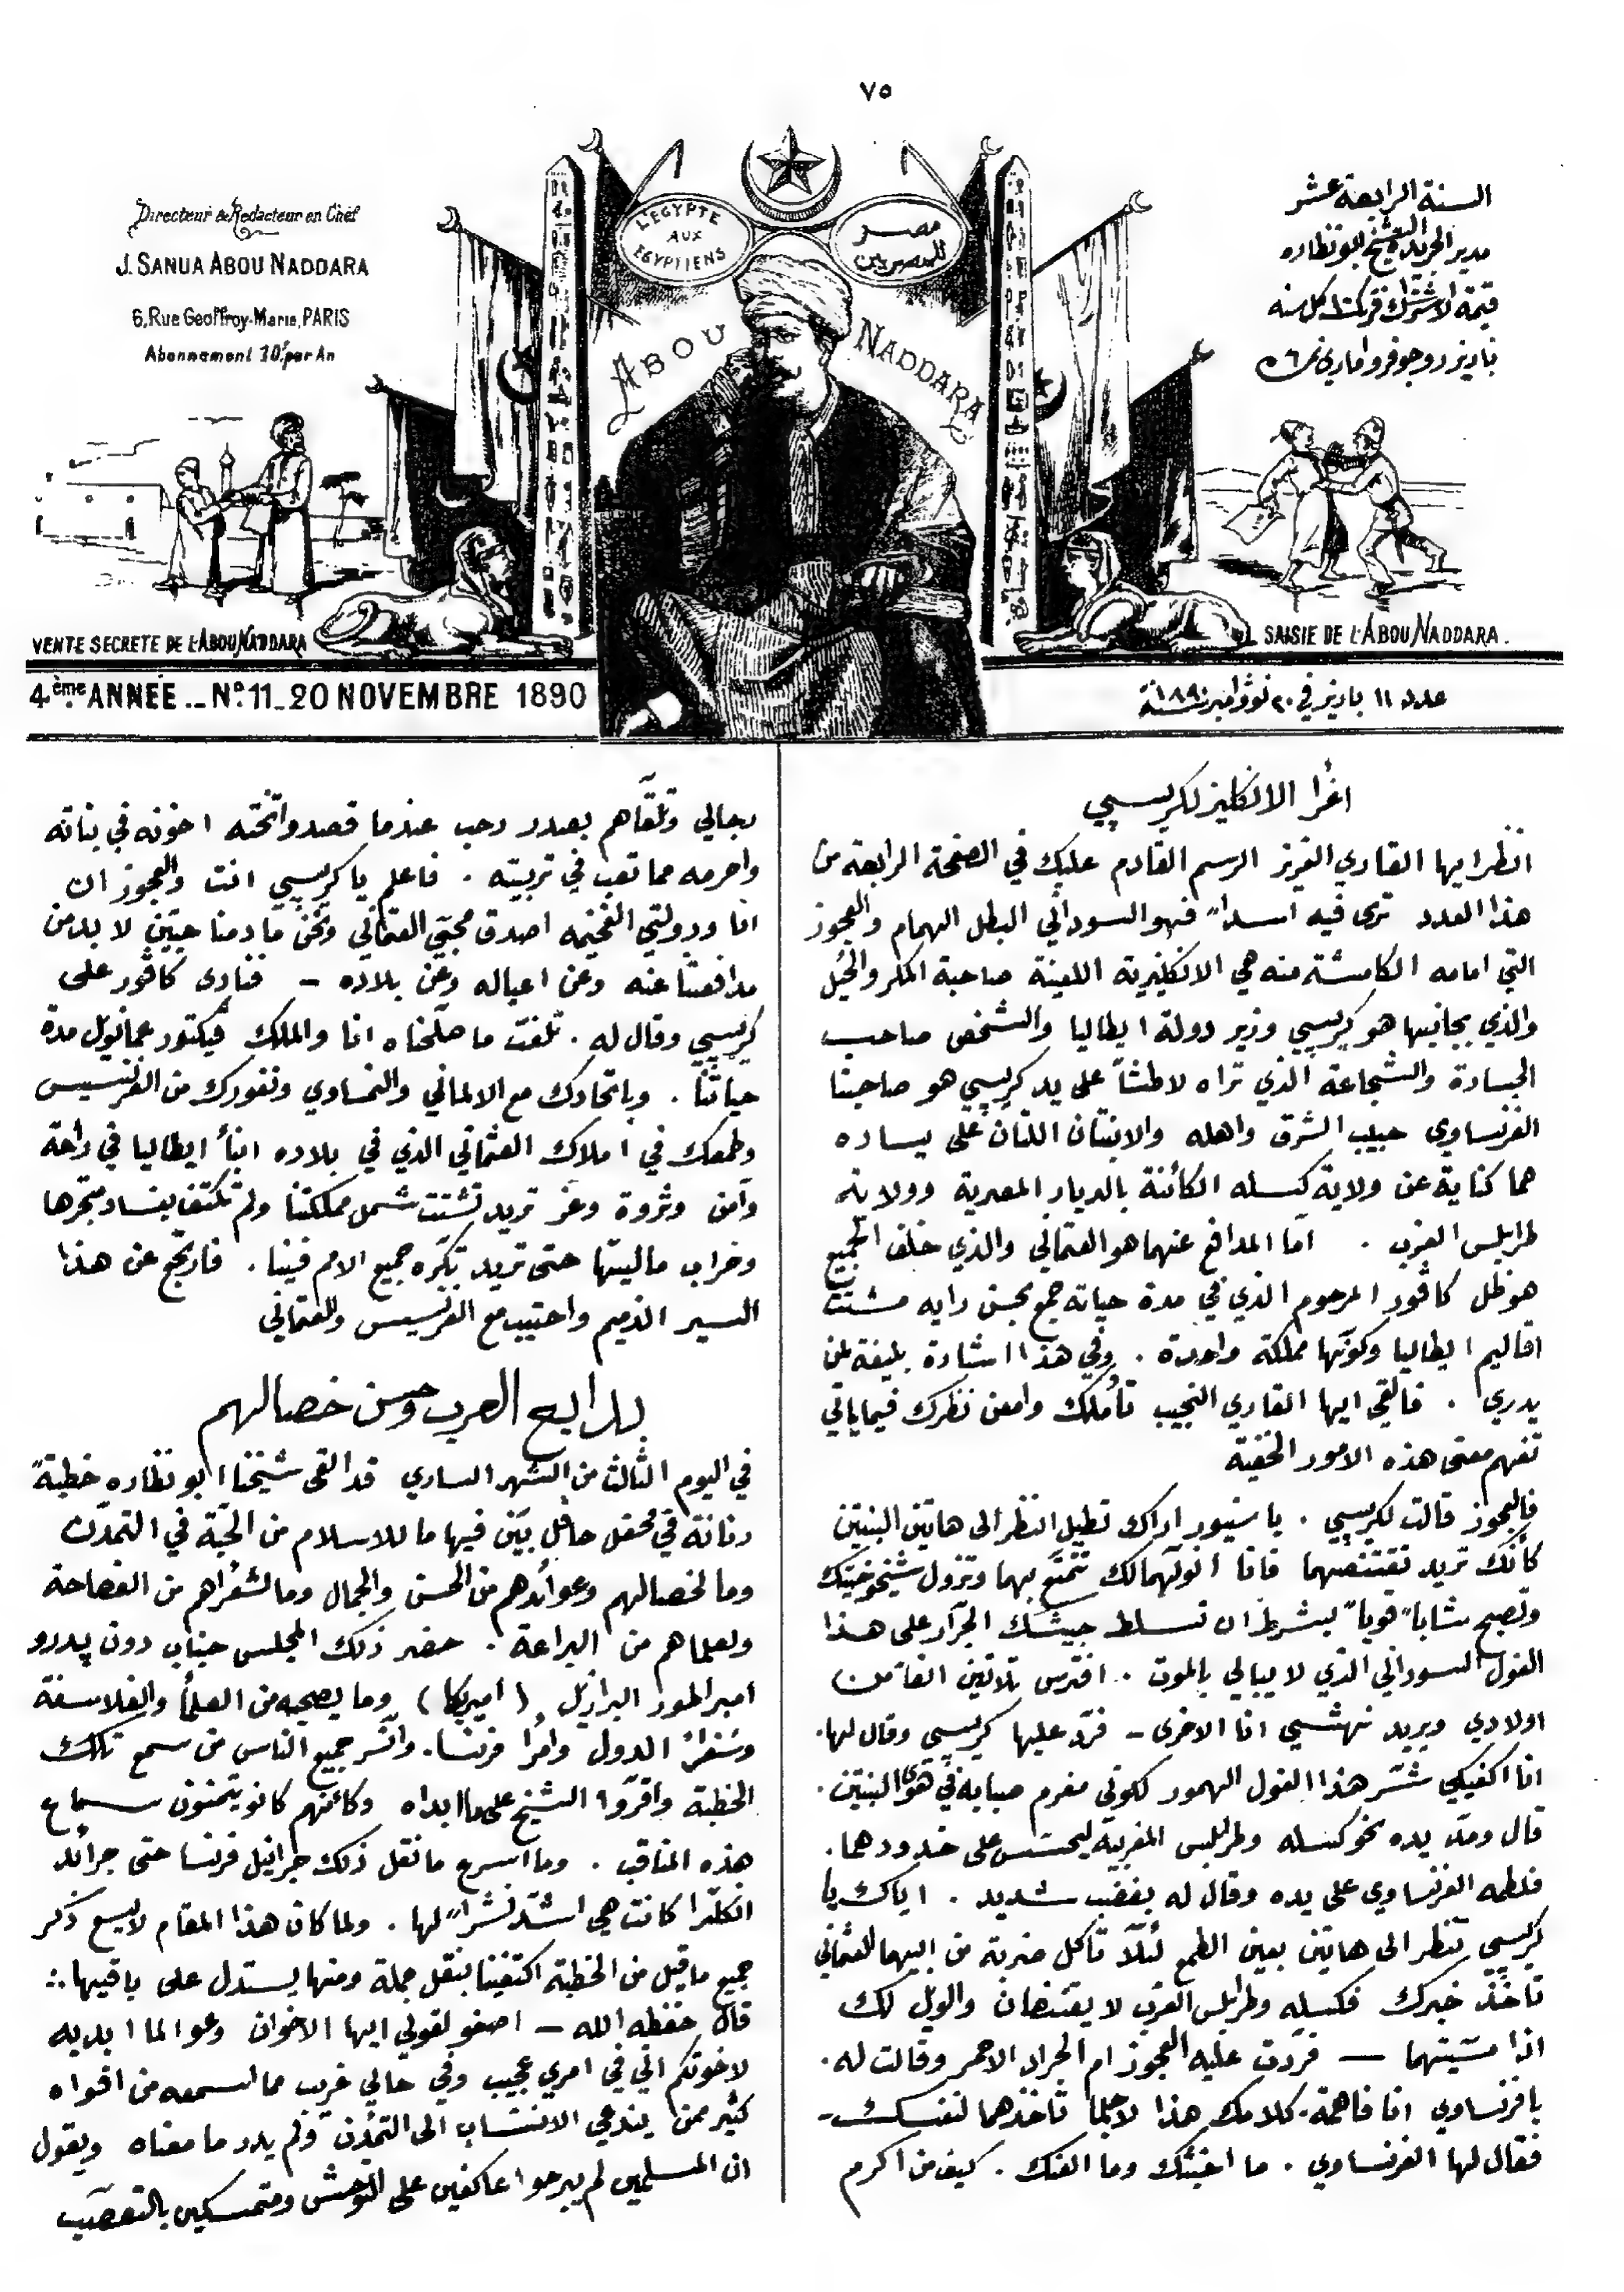 ٧٥
Directeur & Redacteur en Chef
J. SANUA ABOU NADDARA
6, Rue Geoffroy-Marie, PARIS
Abonnement 10f. par An
L'EGYPTE
AUX
EGYPTIENS
مصر
للمصريين
ABOU NADDARA
السنة الرابعة عشر
مدير الجريدة الشيخ ابو نظاره
قيمة الاشتراك فرنكات ١٠ كل سنه
VENTE SECRETE DE L'ABOU NADDARA
SAISIE DE L'ABOU NADDARA.
4ème ANNÉE _ No. 11 _ 20 NOVEMBRE 1890
عدد ١١ باريز في ٢٠ نوڤامبر سنة ١٨٩٠
اغرا الانكليز لكريسپي
انظر ايها القاري العزيز الرسم القادم عليك في الصفحة الرابعة من
هذا العدد ترى فيه اسدا فهو السوداني البطل الهمام والعجوز
التي امامه الكامشة منه هي الانكليزية اللعينة صاحبة المكر والحيل
والذي بجانبها هو كريسپي وزير دولة ايطاليا والشخص صاحب
الجسارة والشجاعة الذي تراه لاطشاً على يد كريسپي هو صاحبنا
الفرنساوي حبيب الشرق واهله والابنتان اللتان على يساره
هما كناية عن ولاية كسله الكائنة بالديار المصرية وولاية
طرابلس الغرب . امّا المدافع عنهما هو العثماني والذي خلف الجميع
هو ظل كاڤور المرحوم الذي في مدة حياته جمع بحسن رايه مشتت
اقاليم ايطاليا وكونها مملكة واحدة . وفي هذا اشارة بليغة لمن
يدري . فالقي ايها القاري النجيب تأملك وامعن نظرك فيما ياتي
تفهم معنى هذه الامور الخفية
فالعجوز قالت لكريسپي . يا سنيور اراك تطيل النظر الى هاتين البنتين
كأنك تريد تقتنصهما فانا انولهمالك تتمتع بهما وتزول شيخوختك
وتصبح شاباً قوياً بشرط ان تسلط جيشك الجرّار على هذا
الغول السوداني الذي لا يبالي بالموت . افترس ثلاثين الفا من
اولادي ويريد نهشي انا الاخرى – فردّ عليها كريسپي وقال لها.
انا اكفيكي شر هذا الغول المهور لكوني مغرم صبابة في هوى البنتين.
قال ومدّ يده نحو كسله وطرابلس المغربية ليحسس على خدودهما.
فلطمه الفرنساوي على يده وقال له بغضب شديد . اياك يا
كريسپي تنظر الى هاتين بعين الطمع لئلّا تأكل ضربة من ابيهما العثماني
تاخذ خبرك فكسله وطرابلس الغرب لا يقتنصان والويل لك
اذا مسّيتهما — فردّت عليه العجوز ام الجراد الاحمر وقالت له.
يا فرنساوي انا فاهمة كلامك هذا لاجلما تاخذهما لنفسك –
فقال لها الفرنساوي . ما اخبثك وما العنك . كيف من اكرم
رجالي وتلقّاهم بصدر رحب عندما قصدوا تخته اخونه في بناته
واحرمه مما تعب في تربيته . فاعلم يا كريسپي انت والعجوز ان
انا ودولتي الفخيمه اصدق محبّي العثماني ونحن ما دمنا حيّين لا بد من
مدافعتنا عنه وعن اعياله وعن بلاده – فنادى كاڤور على
كريسپي وقال له . تلفت ما صلّحناه انا والملك ڤيكتور عمانويل مدة
حياتنا . وباتحادك مع الالماني والنمساوي ونفورك من الفرنسيس
وطمعك في املاك العثماني الذي في بلاده ابنأ ايطاليا في راحة
وآمن وثروة وعز تريد تشتت شمل مملكتنا ولم تكتف بفساد متجرها
وخراب ماليتها حتى تريد تكره جميع الامم فينا . فارتجع عن هذا
السير الذميم واحتيب مع الفرنسيس والعثماني
بدايع العرب وحسن خصالهم
في اليوم الثالث من الشهر الساري قد القى شيخنا ابو نظاره خطبةً
رنانة في محفل حافل بيّن فيها ما للاسلام من المحبّة في التمدّن
وما لخصالهم وعوائدهم من الحسن والجمال وما لشعراهم من الفصاحة
ولعلماهم من البراعة . حضر ذلك المجلس جناب دون پدرو
امبراطور البرازيل (اميريكا) وما يصحبه من العلمأ والفلاسفة
وسفرأ الدول وامرأ فرنسا . وانسّر جميع الناس من سمع تلك
الخطبة واقرّوا الشيخ على ما ابداه وكأنهم كانو يتمنون سماع
هذه المناقب . وما اسرع ما نقل ذلك جرانيل فرنسا حتى جرائد
انكلترا كانت هي اشدّ نشراً لها . ولما كان هذا المقام لا يسع ذكر
جميع ما قيل من الخطبة اكتفينا بنقل جملة ومنها يستدل على باقيها :
قال حفظه الله – اصغو لقولي ايها الاخوان وعوا لما ابديه
لاخوتكم اني في امري عجيب وفي حالي غريب مما اسمعه من افواه
كثير ممن يدعي الانتساب الى التمدن ولم يدر ما معناه ويقول
ان المسلمين لم يبرحوا عاكفين على التوحش ومتمسكين بالتعصّب